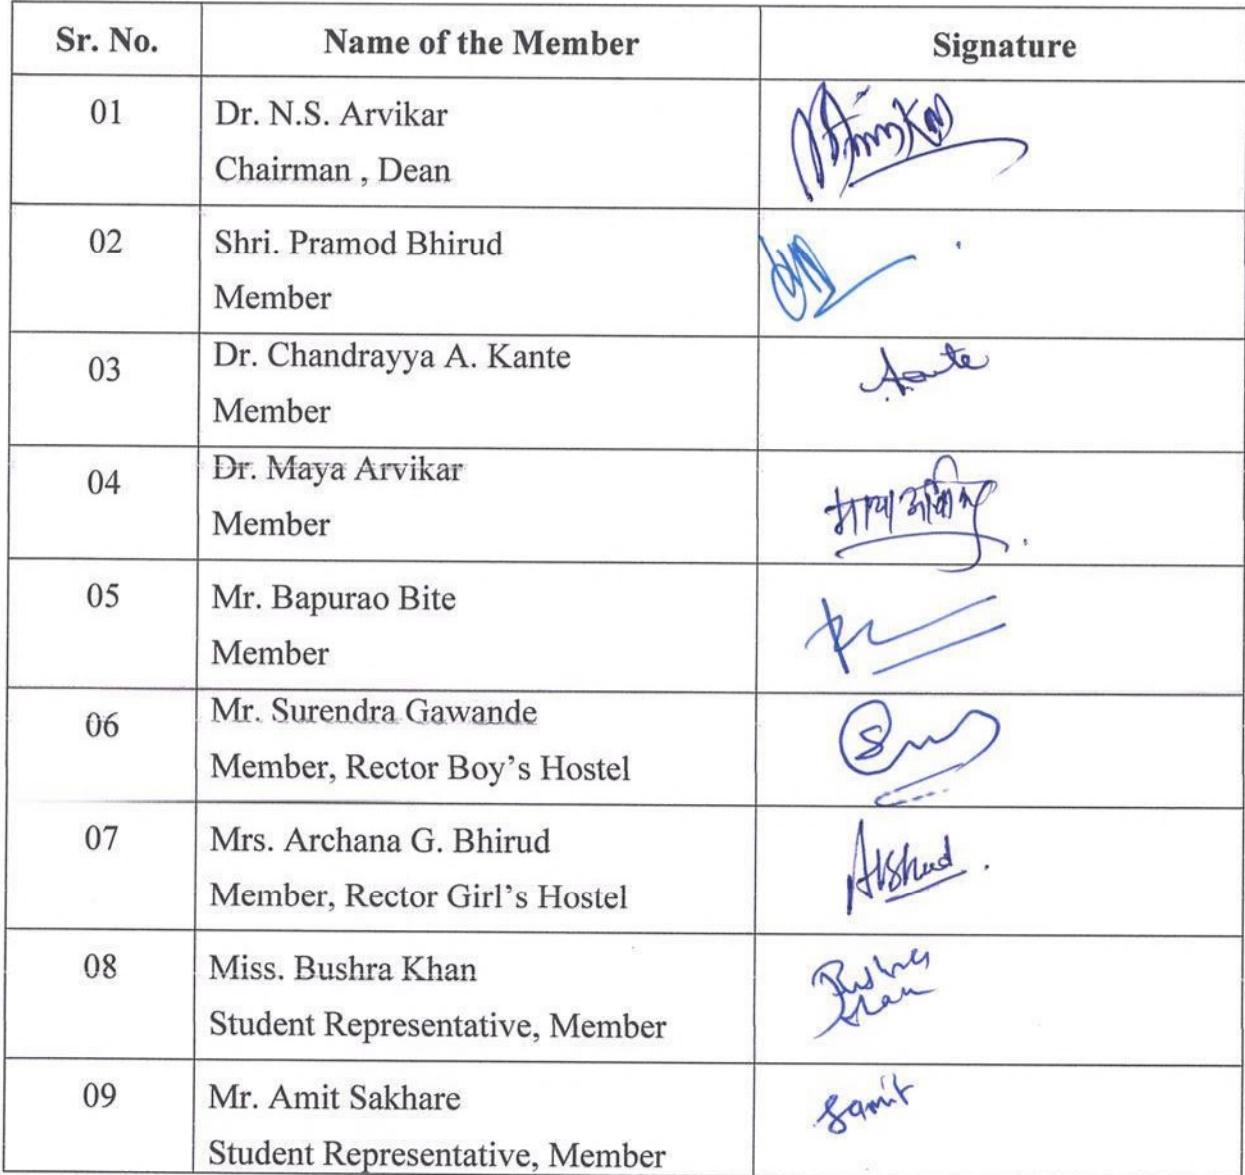 Sr. No. Name of the Member Signature
01 Dr. N.S. Arvikar
Chairman , Dean
02 Shri. Pramod Bhirud
Member
03 Dr. Chandrayya A. Kante
Member
04 Dr. Maya Arvikar
Member
माया आर्विकर
05 Mr. Bapurao Bite
Member
06 Mr. Surendra Gawande
Member, Rector Boy's Hostel
07 Mrs. Archana G. Bhirud
Member, Rector Girl's Hostel
08 Miss. Bushra Khan
Student Representative, Member
Bushra
Khan
09 Mr. Amit Sakhare
Student Representative, Member
Samit